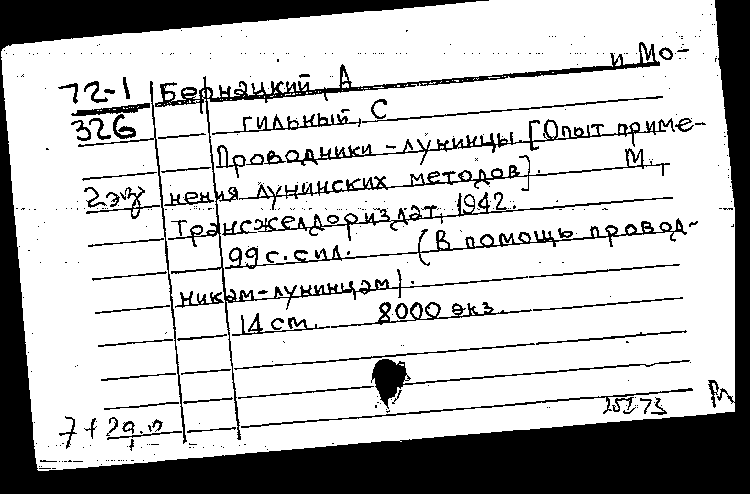 72-1 Бернацкий, А и Мо-
326 гильный, С
Проводники-лунинцы. [Опыт приме-
2 экз нения лунинских методов]. М.,
Трансжелдориздат, 1942.
99 с. с ил. (В помощь провод-
никам-лунинцам).
14 cm. 8000 экз.